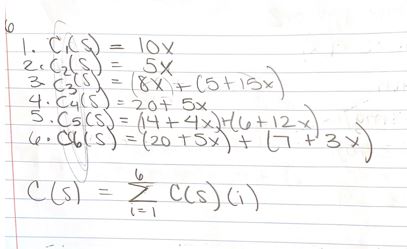 6
1. C₁(S) = 10x
2. C₂(S) = 5x
3. C₃(S) = (8x) + (5+15x)
4. C₄(S) = 20 + 5x
5. C₅(S) = (14 + 4x) + (6 + 12x)
6. C6(S) = (20 + 5x) + (7 + 3x)
6
C(S) = Σ C(S)(i)
i=1